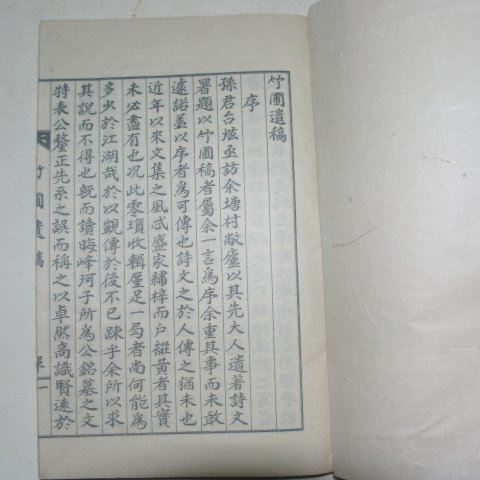 竹圃遺稿
序
孫君台炫亟訪余塘村敞廬以其先大人遺著詩文
署題以竹圃稿者屬余一言爲序余重其事而未敢
遽諾盖以序者爲可傳也詩文之於人傳之猶未也
近年以來文集之風忒盛家繡梓而户褫黄者其實
未必盡有也况此零瓊收輯厪足一局者尚何能爲
多少於江湖哉於以觀傳於後不已踈乎余所以求
其説而不得也旣而讀晦峰河子所爲公銘墓之文
特表公釐正先系之誤而稱之以卓然高識賢遠於
竹圃遺稿
序
一